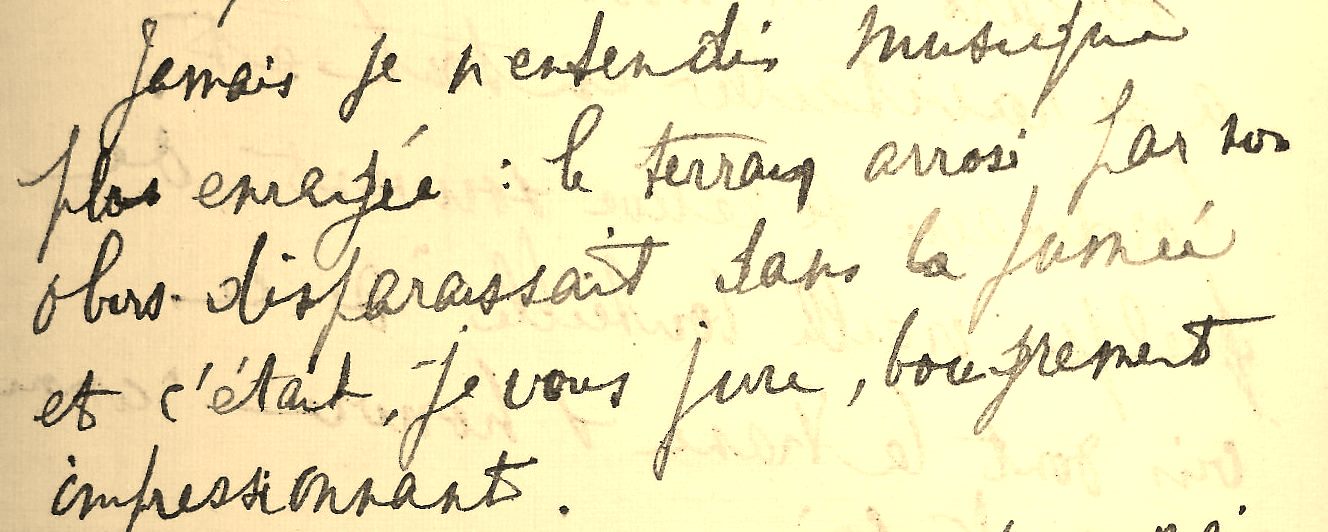 Jamais je n'entendis musique
plus enragée : le terrain arrosé par nos
obus disparaissait dans la fumée
et c'était, je vous jure, bougrement
impressionnant.